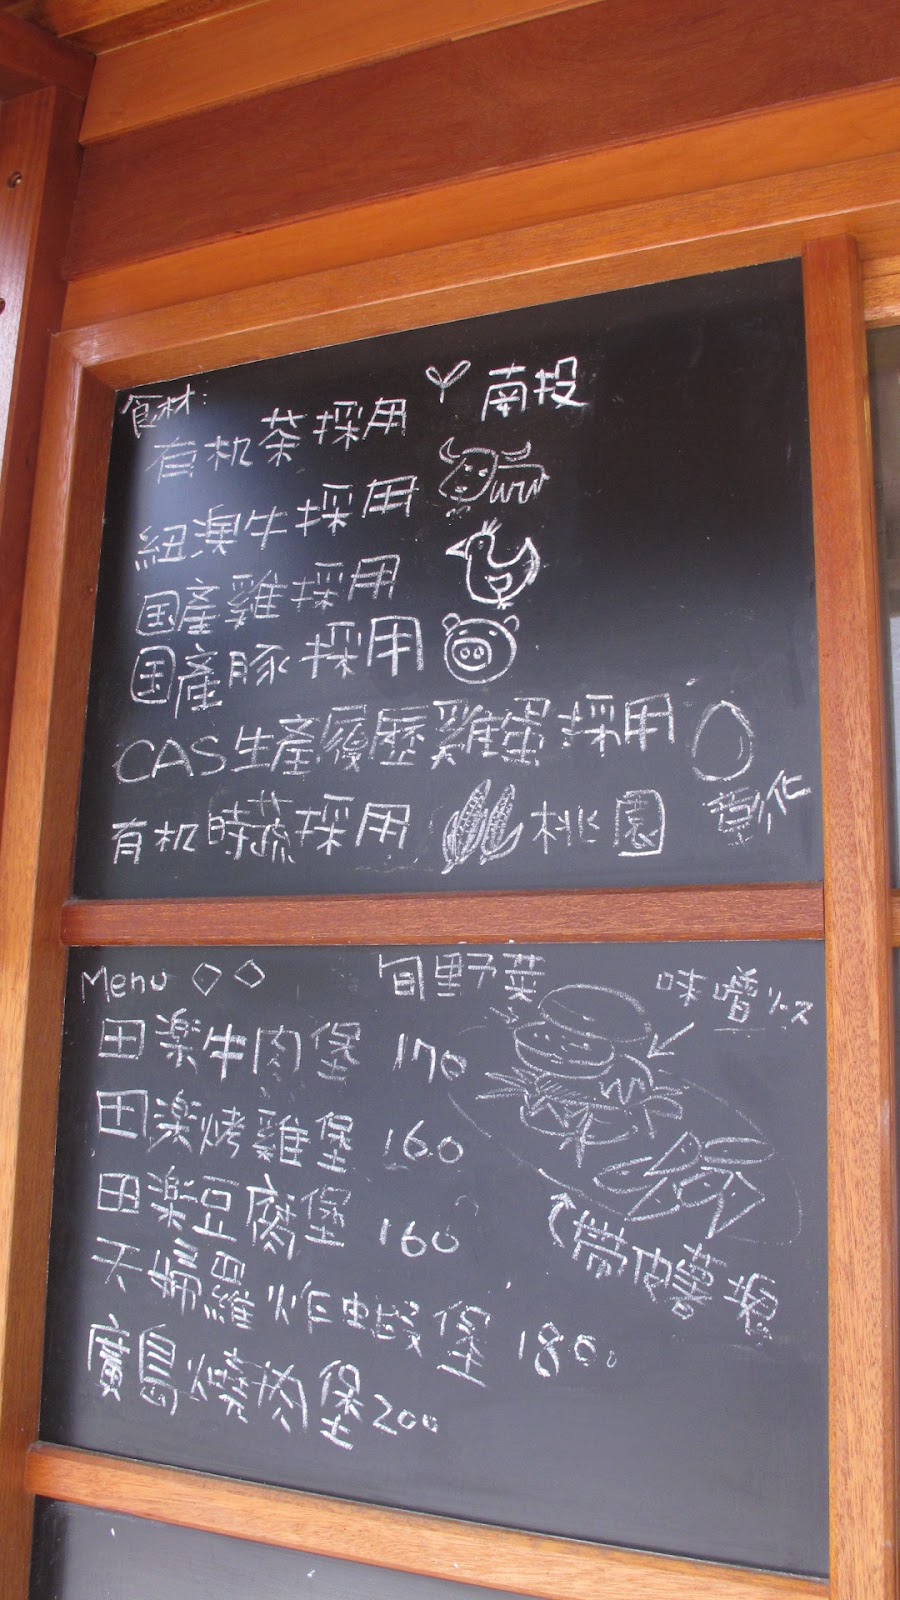 食材:
有机茶採用 南投
紐澳牛採用
国產雞採用
国產豚採用
CAS生產履歷雞蛋採用 彰化
有机時蔬採用 桃園
Menu 旬野菜 味噌
田楽牛肉堡 170
田楽烤雞堡 160
田楽豆腐堡 160
天婦羅炸蝦堡 180
廣島燒肉堡 200
帶皮薯塊